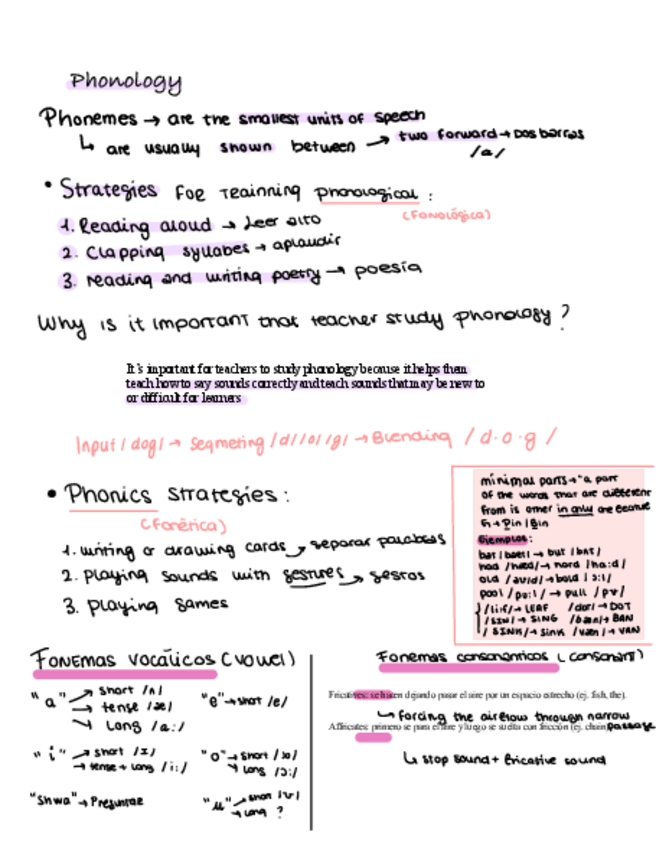 Phonology
Phonemes → are the smallest units of speech
↳ are usually shown between → two forward → Dos barras
/a/
• Strategies for teainning phonological :
(Fonológica)
1. Reading aloud → Leer alto
2. Clapping syllabes → aplaudir
3. reading and writing poetry → poesía
Why is it important that teacher study phonology?
It's important for teachers to study phonology because it helps them
teach how to say sounds correctly and teach sounds that may be new to
or difficult for learners
Input / dog / → Segmeting / d / / o / / g / → Blending / d . o . g /
• Phonics strategies :
(Fonética)
1. writing or drawing cards → separar palabras
2. playing sounds with gestures → gestos
3. playing games
minimal parts → "a part
of the words that are different
from is other in only one
→ Pin / Bin
Ejemplos:
bat /baet/ → but /bʌt/
had /hæd/ → hard /ha:d/
old /
pool /pu:l/ → pull /
/liif/ → LEAF /dot/ → DOT
/SIN/ → SING /bæn/ → BAN
/SINK/ → sink /væn/ → VAN
Fonemas vocálicos (vowel)
"a" → short /ʌ/
→ tense /æ/
→ Long /a:/
"e" → short /e/
"i" → short /ɪ/
→ tense + long /i:/
"o" → short /
→ long /ɔ:/
"shwa" → Preguntar
"u" → short /ʊ/
→ long ?
Fonemas consonánticos (consonant)
Fricatives: se hacen dejando pasar el aire por un espacio estrecho (ej. fish, the).
↳ forcing the airflow through narrow passage
Affricates: primero se para el aire y luego se suelta con fricción (ej. chair,
↳ stop sound + fricative sound